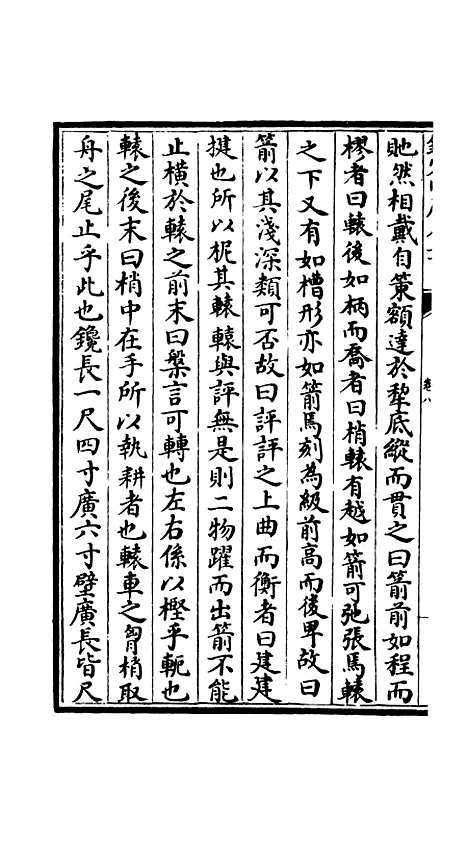 卷八
貤然相戴自策額達於犂底縱而貫之曰箭前如桯而
樛者曰轅後如柄而喬者曰梢轅有越如箭可弛張焉轅
之下又有如槽形亦如箭焉刻為級前高而後卑故曰
箭以其淺深類可否故曰評評之上曲而衡者曰建建
揵也所以柅其轅轅與評無是則二物躍而出箭不能
止横於轅之前末曰槃言可轉也左右係以樫乎軛也
轅之後末曰梢中在手所以執耕者也轅車之胷梢取
舟之尾止乎此也鑱長一尺四寸廣六寸壁廣長皆尺